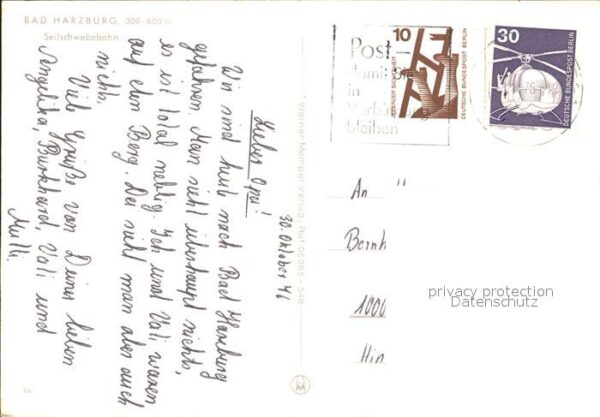 BAD HARZBURG, 300-600 m
Seilschwebebahn
30. Oktober 76
Lieber Opa!
Wir sind heut nach Bad Harzburg
gefahren. Man sieht überhaupt nichts,
es ist total neblig. Ich und Vati waren
auf dem Berg. Da sieht man aber auch
nichts.
Viele Grüße von Deiner lieben
Angelika, Burkhard, Vati und
Mutti.
56
Werner Mumpel Verlag, Ruf 05065-548
Post-
damit
in
Verbindung
bleiben
10
JEDERZEIT SICHERHEIT
DEUTSCHE BUNDESPOST BERLIN
30
DEUTSCHE BUNDESPOST BERLIN
An
Bernh
1000
privacy protection
Datenschutz